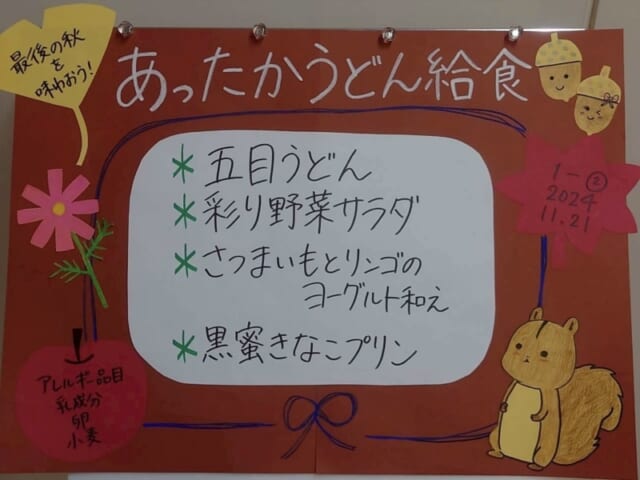 最後の秋
を
味わおう!
あったかうどん給食
1-②
2024
11.21
*五目うどん
*彩り野菜サラダ
*さつまいもとリンゴの
ヨーグルト和え
*黒蜜きなこプリン
アレルギー品目
乳成分
卵
小麦